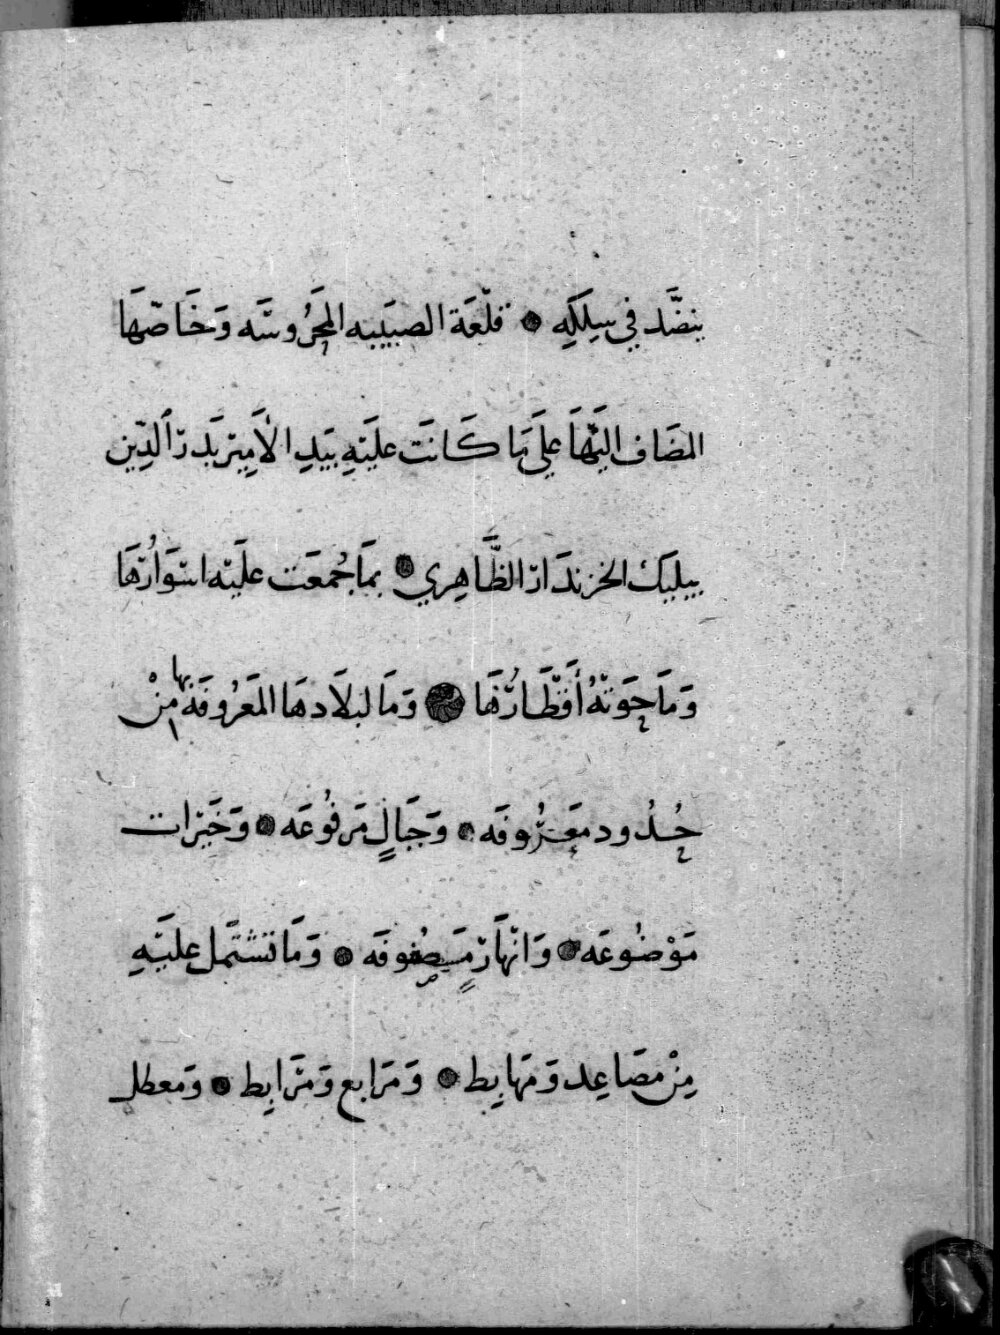 ينضَّد في سِلكِهِ ۞ قلْعَة الصبَيبه المحَرُوسَه وَخَاصّهَا
المضَاف اليَهَا علَى مَا كَانَت عليَهِ بيَدِ الأَمِير بَدر الدِّين
بيلبيَك الخزندَار الظَّاهِري ۞ بمَا جُمعَت عليَه اسْوَارُهَا
وَمَا حَوَتْهُ أَقْطَارُهَا ۞ وَمَا لبلَادهَا المَعرُوفَة بها مِنْ
حُدُود معَرُوفَه ۞ وَجَبَالٍ مَرفُوعَه ۞ وَخَيْرات
مَوْضُوعَه ۞ وَانْهَارٍ مَصفُوفَه ۞ وَمَا تشتَمل عليَهِ
مِنْ مصَاعِد وَمهَابِط ۞ وَمَرَابع وَمَرَابِط ۞ وَمعطل